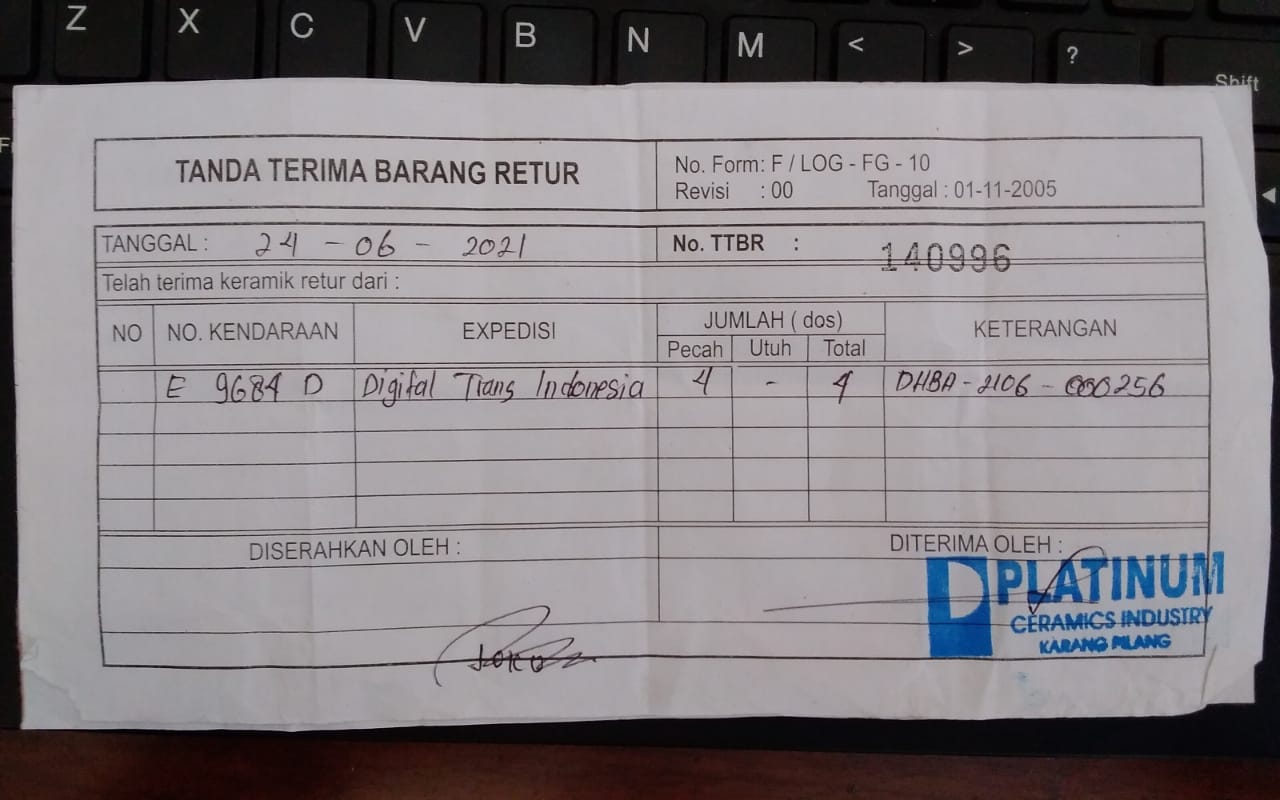 Z X C V B N M < > ?
Shift
F
TANDA TERIMA BARANG RETUR
No. Form: F / LOG - FG - 10
Revisi : 00 Tanggal : 01-11-2005
TANGGAL : 24 - 06 - 2021 No. TTBR : 140996
Telah terima keramik retur dari :
NO NO. KENDARAAN EXPEDISI JUMLAH ( dos) KETERANGAN
Pecah Utuh Total
E 9684 D Digital Trans Indonesia 4 - 4 DHBA - 2106 - 000256
DISERAHKAN OLEH : DITERIMA OLEH :
PLATINUM
CERAMICS INDUSTRY
KARANG PILANG